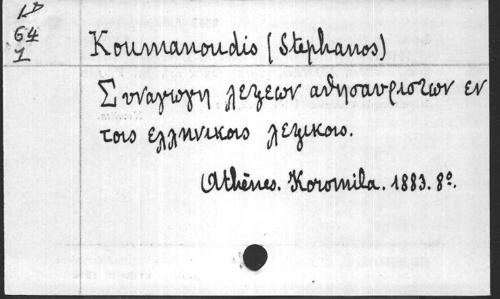 LD
64
1
Koumanoudis (Stephanos)
Συναγωγη λεξεων αθησαυριστων εν
τοις ελληνικοις λεξικοις.
Athènes. Koromila. 1883. 8º.